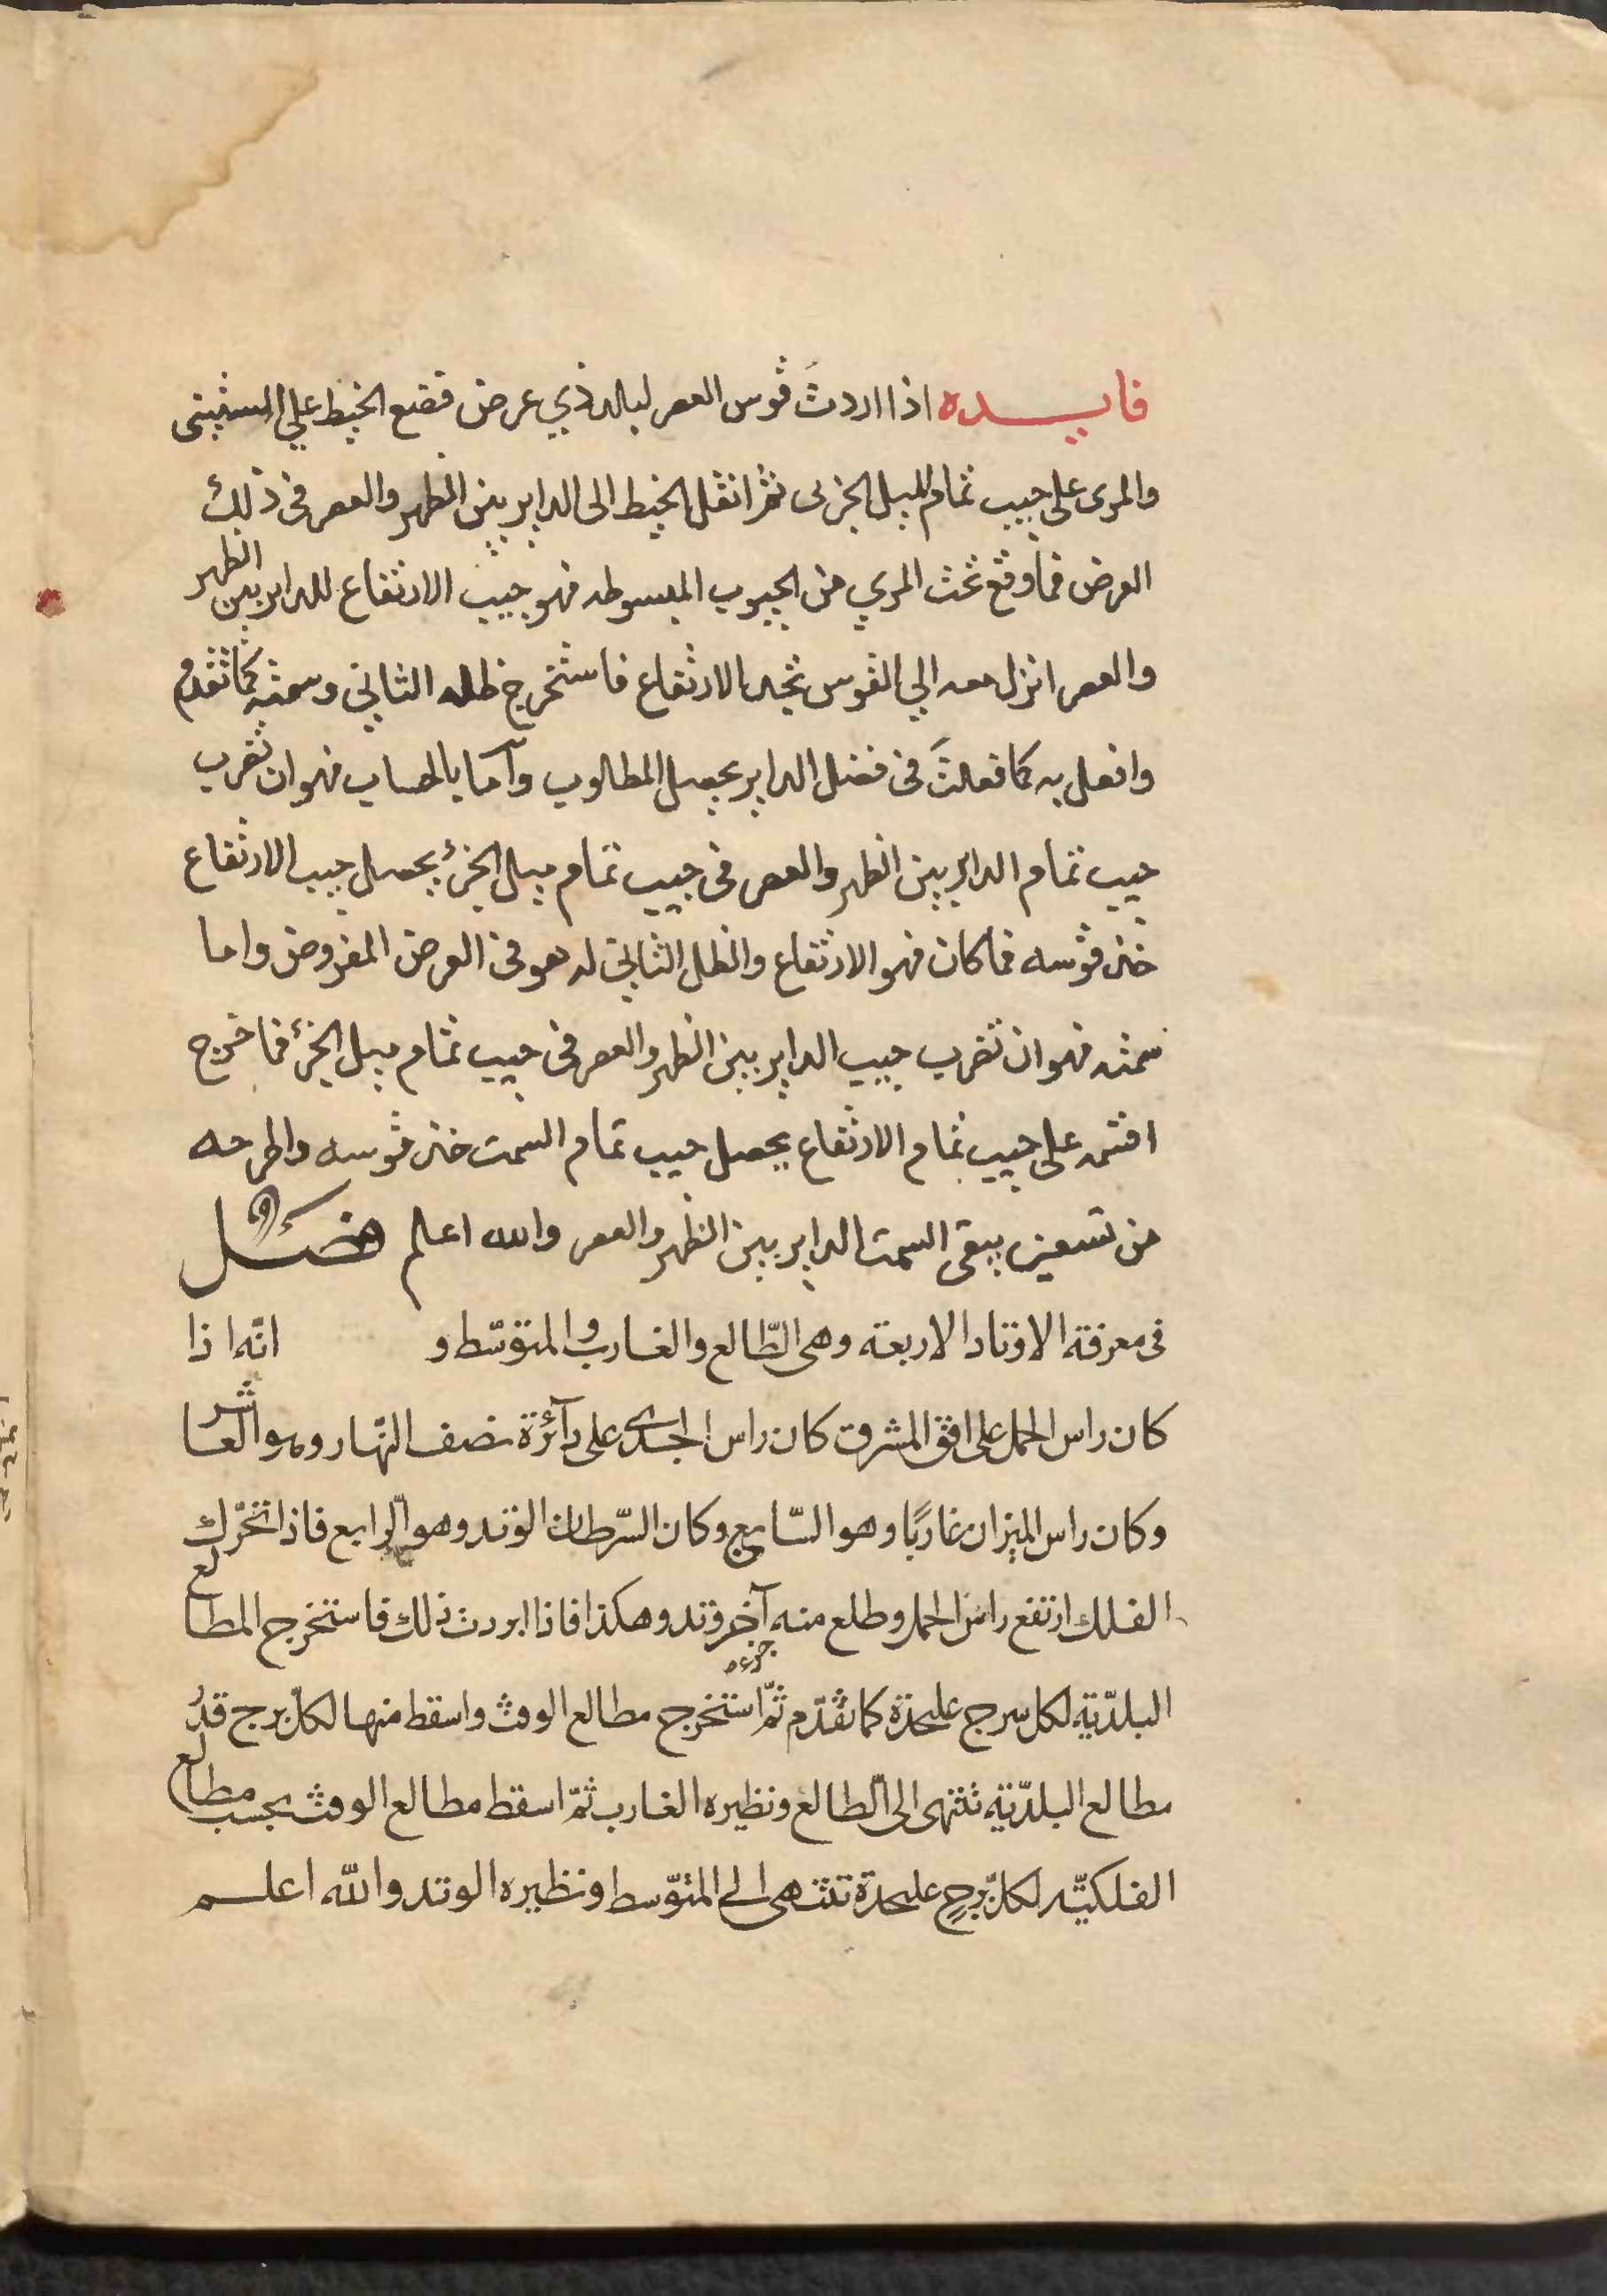 فايــــده اذا اردتَ قوس العصر لبالد ذي عرض فضع الخيط علي الستيني
والمرى على جيب تمام الميل الجزئى ثم انقل الخيط الى الداير بين الظهر والعصر فى ذلك
العرض فما وقع تحت المري من الجيوب المبسوطه فهو جيب الارتفاع للداير بين الظهر
والعصر انزل معه الي القوس تجد الارتفاع فاستخرج ظله الثاني وسمته كما تقدم
وافعل به كما فعلتَ فى فضل الداير يحصل المطلوب وآما بالحساب فهو ان تضرب
جيب تمام الداير بين الظهر والعصر فى جيب تمام ميل الجزئ يحصل جيب الارتفاع
خذ قوسه فما كان فهو الارتفاع والظل الثاني له هو فى العرض المفروض واما
سمته فهو ان تضرب جيب الداير بين الظهر والعصر فى جيب تمام ميل الجزئ فما خرج
اقسمه على جيب تمام الارتفاع يحصل جيب تمام السمت خذ قوسه واطرحه
من تسعين يبقى السمت الداير بين الظهر والعصر والله اعلم فصــل
فى معرفة الاوتاد الاربعة وهى الطّالع والغارب والمتوسّط و انّه اذا
كان راس الحمل على افق المشرق كان راس الجدى على دآئرة نصف النّهار وهو العاشر
وكان راس الميزان غاربًا وهو السّابع وكان السّرطان الوتد وهو الرّابع فاذا تحرّك
الفلك ارتفع راس الحمل وطلع منه آخر وتد وهكذا فاذا اردت ذلك فاستخرج المطالع
جزءه
البلدّية لكل برج عليحدة كما تقدّم ثمّ استخرج مطالع الوقت واسقط منها لكلّ برج قدرُ
مطالع البلدّية تنتهى الى الطّالع ونظيره الغارب ثمّ اسقط مطالع الوقت بحسب مطالع
الفلكيّه لكلّ برجٍ عليحدة تنتهى الى المتوّسط ونظيره الوتد والله اعلــم